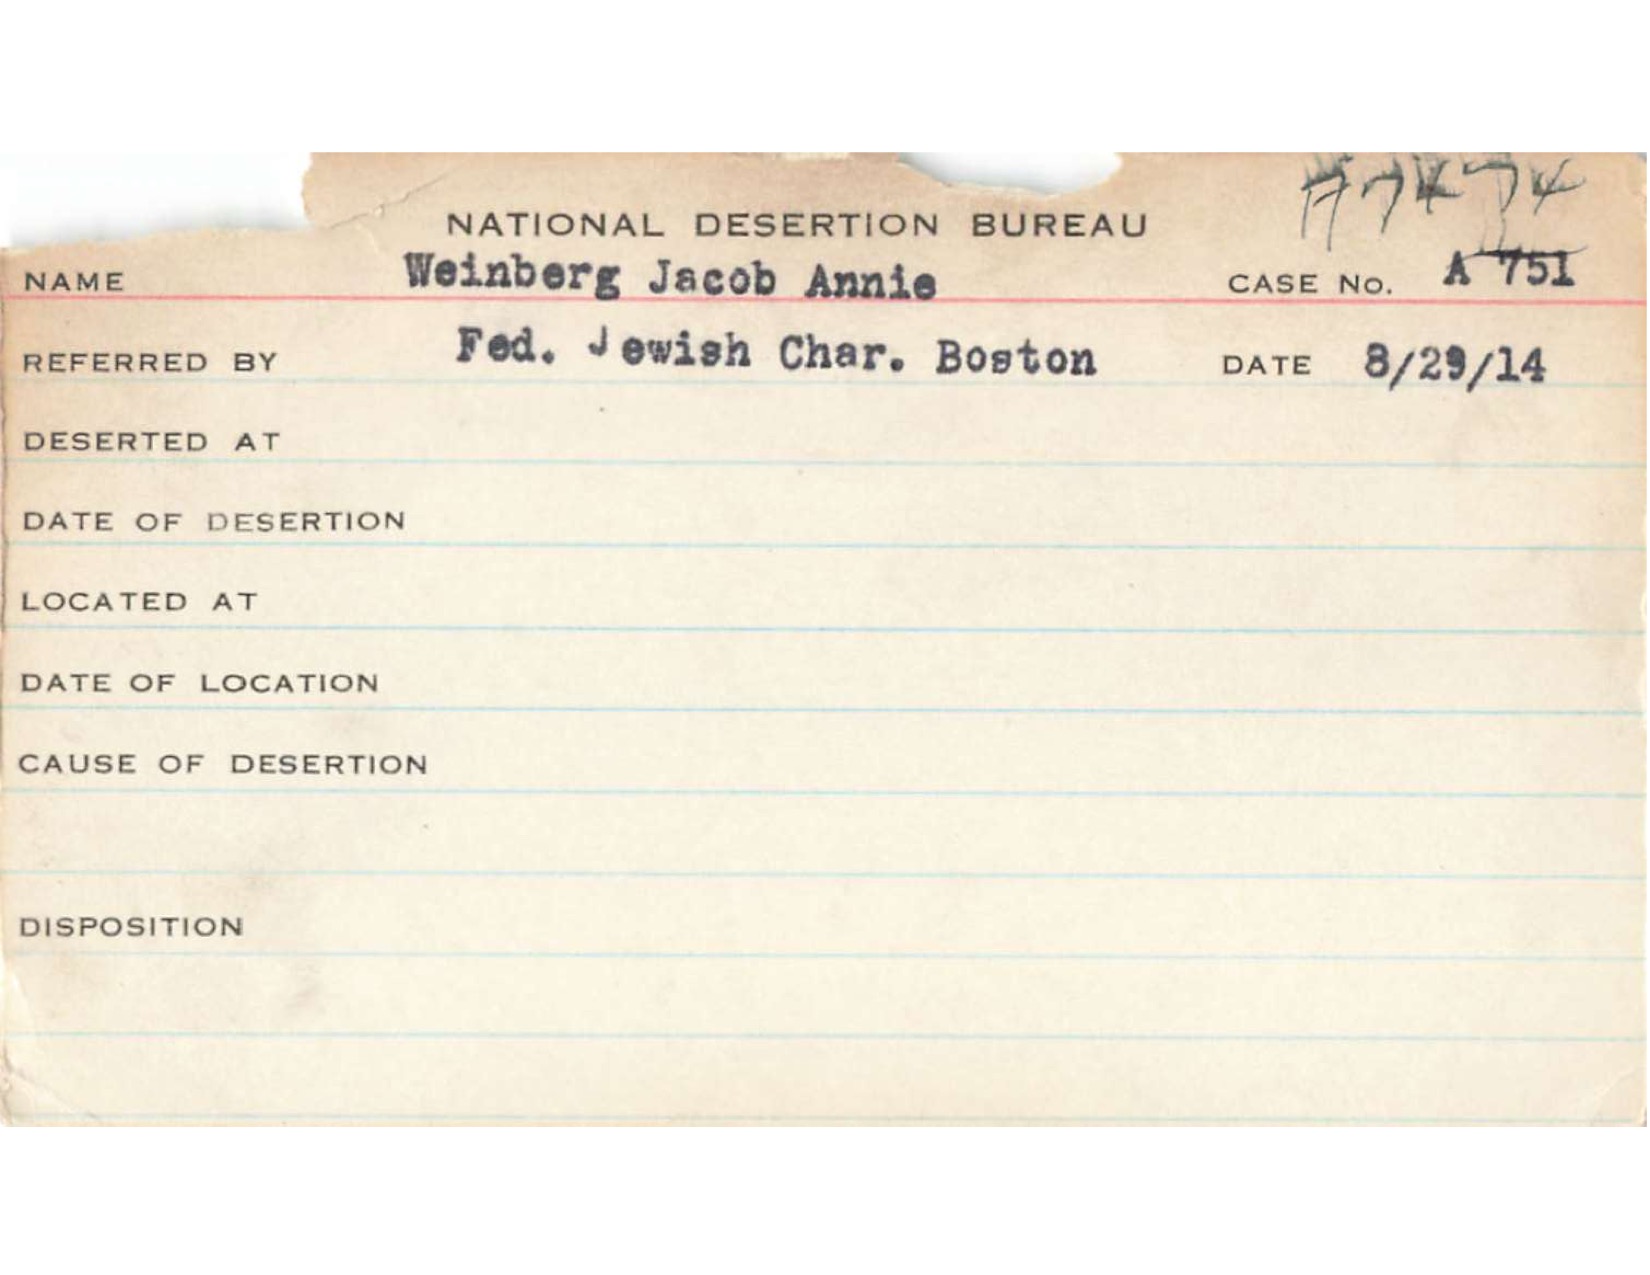 NATIONAL DESERTION BUREAU
NAME Weinberg Jacob Annie CASE No. A 751
REFERRED BY Fed. Jewish Char. Boston DATE 8/29/14
DESERTED AT
DATE OF DESERTION
LOCATED AT
DATE OF LOCATION
CAUSE OF DESERTION
DISPOSITION